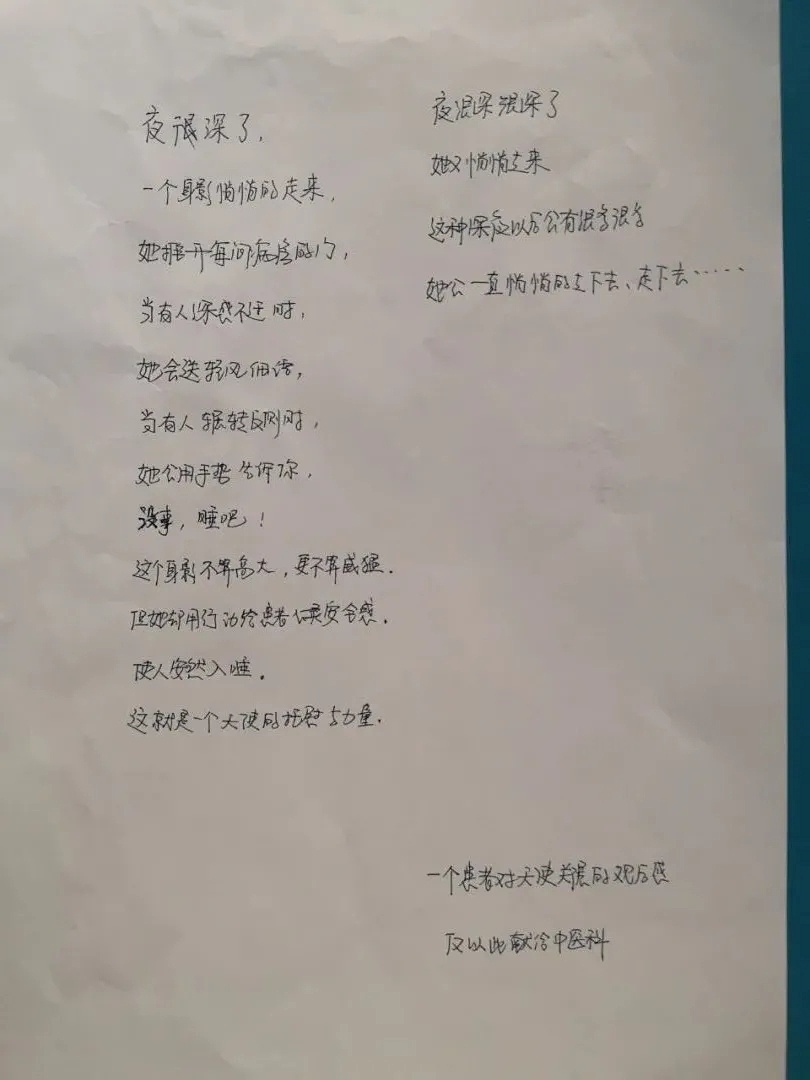 夜很深了，
一个身影悄悄的走来，
她推开每间病房的门，
当有人深感不适时，
她会送轻风细语，
当有人辗转反侧时，
她会用手势告诉你，
没事，睡吧！
这个身影不算高大，更不算威猛．
但她却用行动给患者保安全感．
使人安然入睡．
这就是一个天使的抚慰与力量．
夜很深很深了
她又悄悄走来
这种深夜以后会有很多很多
她会一直悄悄的走下去、走下去……
一个患者对天使关爱的观后感
仅以此献给中医科